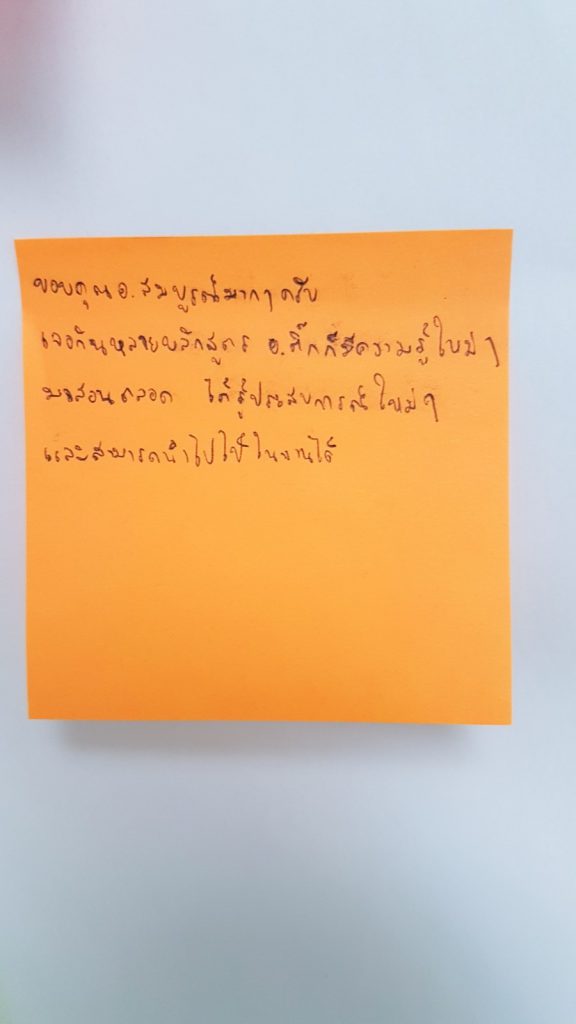 ขอบคุณ อ.สมบูรณ์มากๆครับ
เจอกันหลายหลักสูตร อ.ติ๊กก็มีความรู้ใหม่ๆ
มาสอนตลอด ได้รู้ประสบการณ์ใหม่ๆ
และสามารถนำไปใช้ในงานได้